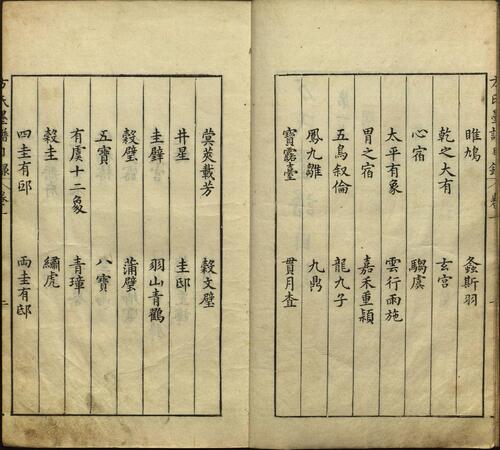 睢鳩 螽斯羽
乾之大有 玄宮
心宿 騶虞
太平有象 雲行雨施
胃之宿 嘉禾重穎
五鳥叙倫 龍九子
鳳九雛 九鼎
寳露臺 貫月查
蓂莢載芳 榖文璧
井星 圭邸
圭璧 羽山青鸐
榖璧 蒲璧
五寶 八寶
有虞十二象 青璋
榖圭 繡虎
四圭有邸 兩圭有邸
方氏墨譜目録 卷一